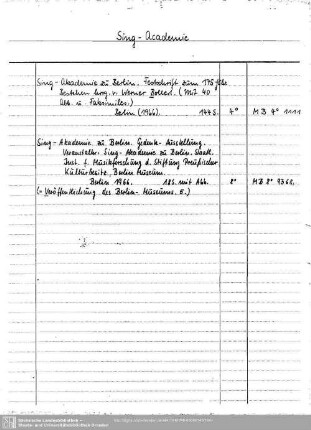 Sing-Academie
Sing-Akademie zu Berlin. Festschrift zum 175 jähr.
Bestehen hrsg. v. Werner Bollert. (Mit 40
Abb. u. Faksimiles.)
Berlin (1966). 144 S. 4° MB 4° 1111
Sing-Akademie zu Berlin. Gedenk-Ausstellung.
Veranstalter: Sing-Akademie zu Berlin. Staatl.
Inst. f. Musikforschung d. Stiftung Preußischer
Kulturbesitz, Berlin Museum.
Berlin 1966. 18 S. mit Abb. 8° MB 8° 9368
(= Veröffentlichung des Berlin-Museums. 5.)